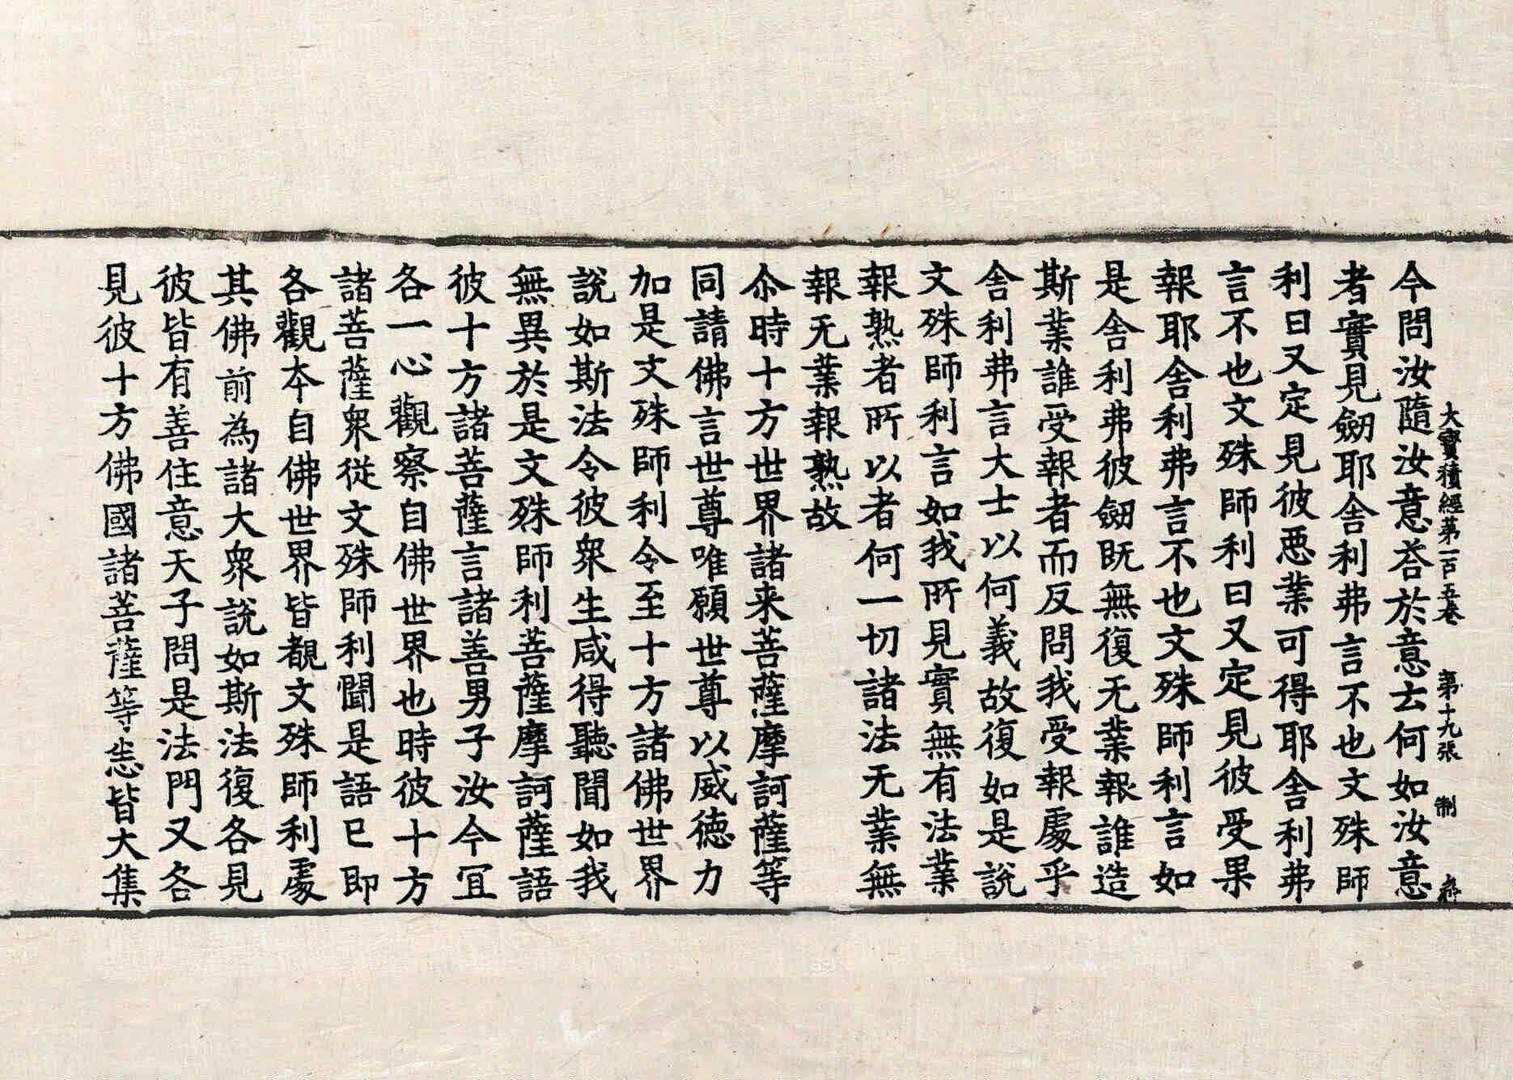 大寶積經第一百五卷 第十九張 制
今問汝隨汝意荅於意云何如汝意
者實見劒耶舍利弗言不也文殊師
利曰又定見彼惡業可得耶舍利弗
言不也文殊師利曰又定見彼受果
報耶舍利弗言不也文殊師利言如
是舍利弗彼劒既無復无業報誰造
斯業誰受報者而反問我受報處乎
舍利弗言大士以何義故復如是說
文殊師利言如我所見實無有法業
報熟者所以者何一切諸法无業無
報无業報熟故
尒時十方世界諸来菩薩摩訶薩等
同請佛言世尊唯願世尊以威德力
加是文殊師利令至十方諸佛世界
說如斯法令彼衆生咸得聽聞如我
無異於是文殊師利菩薩摩訶薩語
彼十方諸菩薩言諸善男子汝今冝
各一心觀察自佛世界也時彼十方
諸菩薩衆從文殊師利聞是語已即
各觀夲自佛世界皆覩文殊師利處
其佛前為諸大衆說如斯法復各見
彼皆有善住意天子問是法門又各
見彼十方佛國諸菩薩等悉皆大集